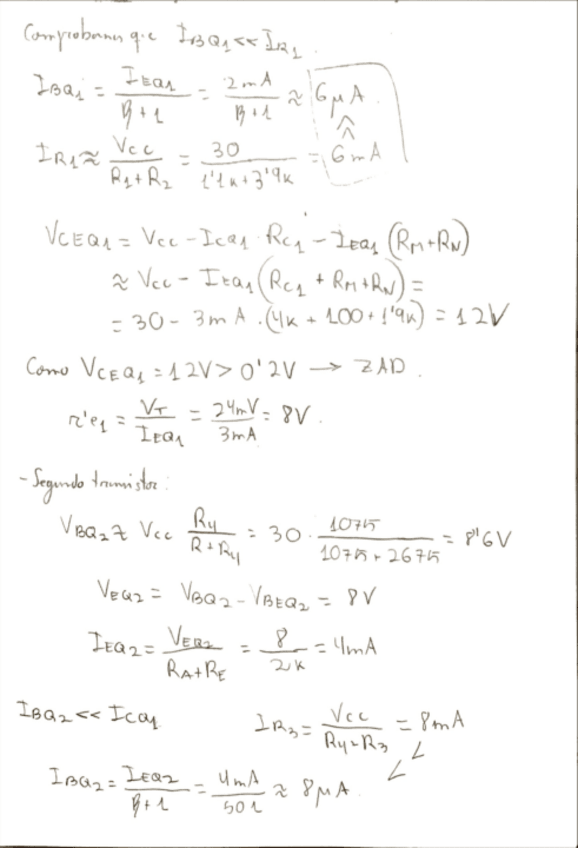 Comprobamos que IBQ1 << IR1.
IBQ1 = IEQ1 / β+1 = 2mA / β+1 ≈ 6μA
IR1 ≈ Vcc / R1+R2 = 30 / 1'1k+3'9k = 6mA
VCEQ1 = Vcc - ICQ1 · RC1 - IEQ1 (RM+RN)
≈ Vcc - IEQ1 (RC1 + RM+RN) =
= 30 - 3mA · (4k + 100 + 1'9k) = 12V
Como VCEQ1 = 12V > 0'2V → ZAD.
r'e1 = VT / IEQ1 = 24mV / 3mA = 8V.
- Segundo transistor:
VBQ2 ≈ Vcc R4 / R+R4 = 30 · 1075 / 1075 + 2675 = 8'6V
VEQ2 = VBQ2 - VBEQ2 = 8V
IEQ2 = VEQ2 / RA+RE = 8 / 2k = 4mA
IBQ2 << ICQ1 IR3 = Vcc / R4+R3 = 8mA
IBQ2 = IEQ2 / β+1 = 4mA / 501 ≈ 8μA <<